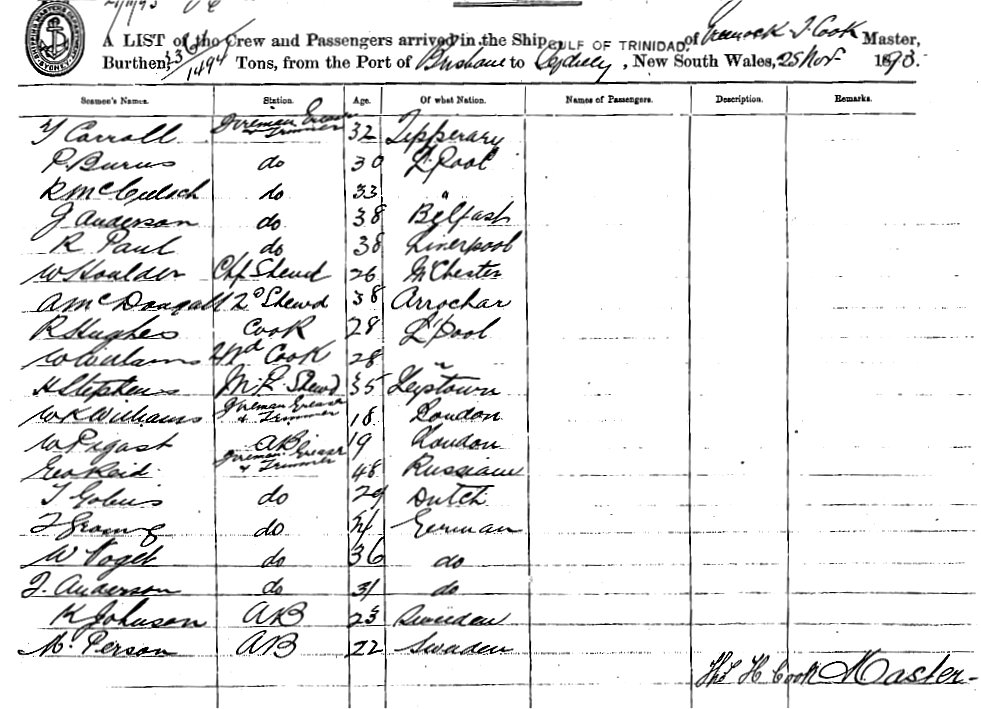 A LIST of the Crew and Passengers arrived in the Ship GULF OF TRINIDAD, of Greenock T. Cook Master,
Burthen 1494 Tons, from the Port of Brisbane to Sydney, New South Wales, 25 Nov 1893.
Seamen's Names. Station. Age. Of what Nation. Names of Passengers. Description. Remarks.
T Carroll Fireman Greaser & Trimmer 32 Tipperary
P. Burns do 30 L'Pool
R McCulloch do 33 "
J Anderson do 38 Belfast
R Paul do 38 Liverpool
W Houlder Chf Stewd 26 M'Chester
A McDougall 2nd Stewd 38 Arrochar
R Hughes Cook 28 L'Pool
W Williams 2nd Cook 28 "
H Stephens M.R. Stewd 35
W K Williams Fireman Greaser & Trimmer 18 London
W Pegast AB 19 London
Geo Reid Fireman Greaser & Trimmer 48 Russian
T do 29 Dutch
do German
W Vogel do 36 do
J. Anderson do 31 do
K Johnson AB 23 Sweeden
M. Person AB 22 Sweden
Ths H Cook Master